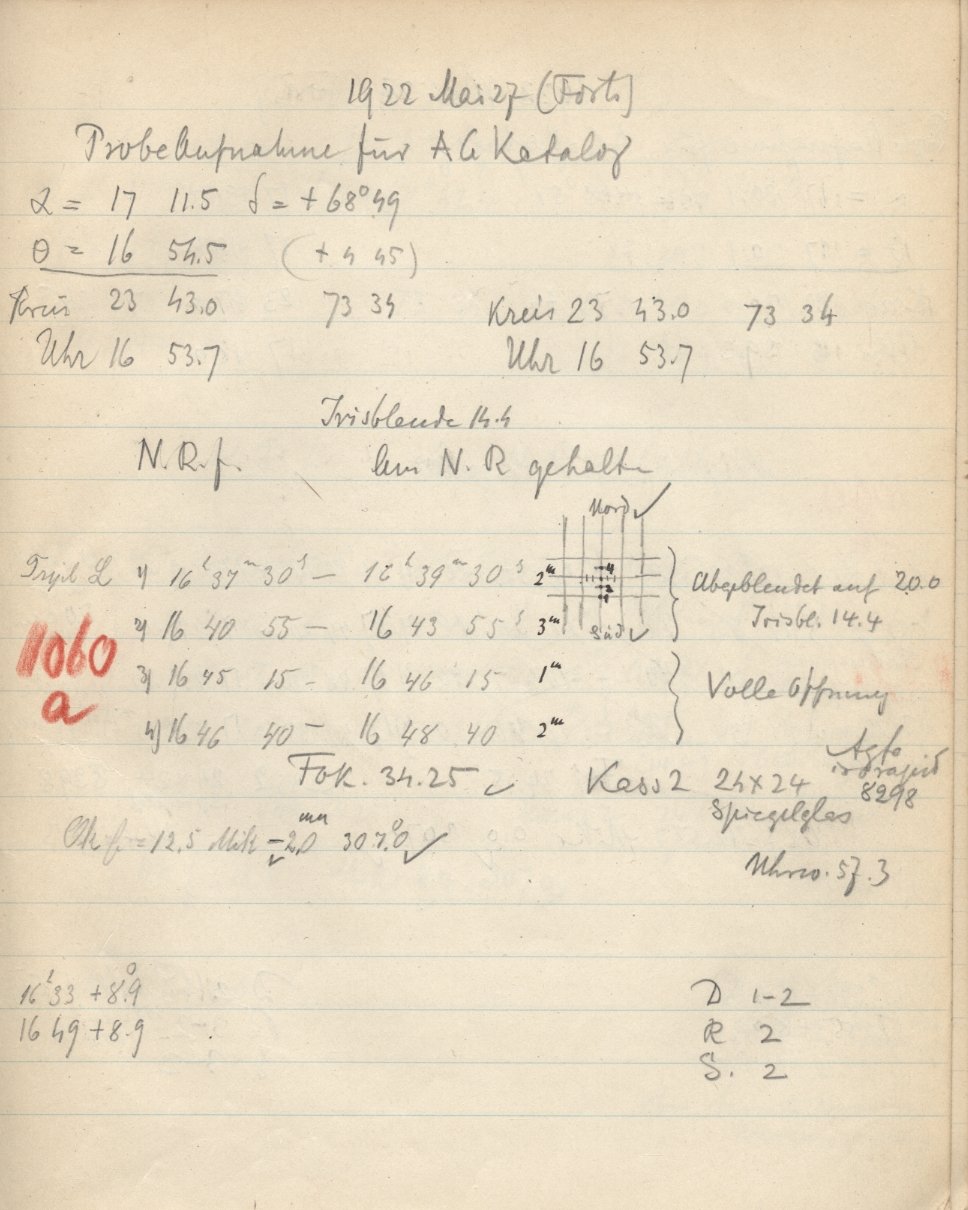 1922 Mai 27 (Forts)
Probe Aufnahme für AG Katalog
α = 17 11.5 δ = +68°49
θ = 16 54.5 (+4 45)
Kreis 23 43.0 73 34 Kreis 23 43.0 73 34
Uhr 16 53.7 Uhr 16 53.7
Irisblende 14.4
N.R.f. Am N.R gehalten
Nord ✓
Tripl L 1) 16h 37m 30s – 16h 39m 30s 2m Abgeblendet auf 20.0
2) 16 40 55 – 16 43 55s 3m Irisbl. 14.4
Süd ✓
1060
a
3) 16 45 15 – 16 46 15 1m Volle Öffnung
4) 16 46 40 – 16 48 40 2m
Fok. 34.25 ✓ Kass 2 24×24 Agfa
8298
Spiegelglas
= 12.5 –2.0 mm 307.0° ✓
Uhrw. 57.3
16h 33 +8.9°
16 49 +8.9
D 1-2
R 2
S. 2